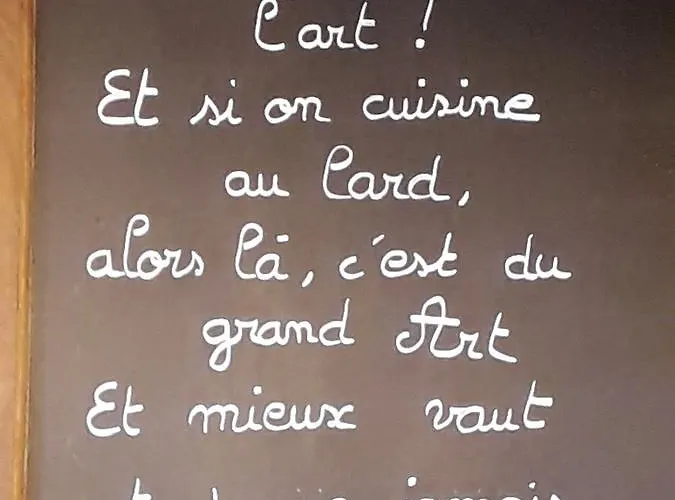 l'art !
Et si on cuisine
au lard,
alors là, c'est du
grand Art
Et mieux vaut
jamais